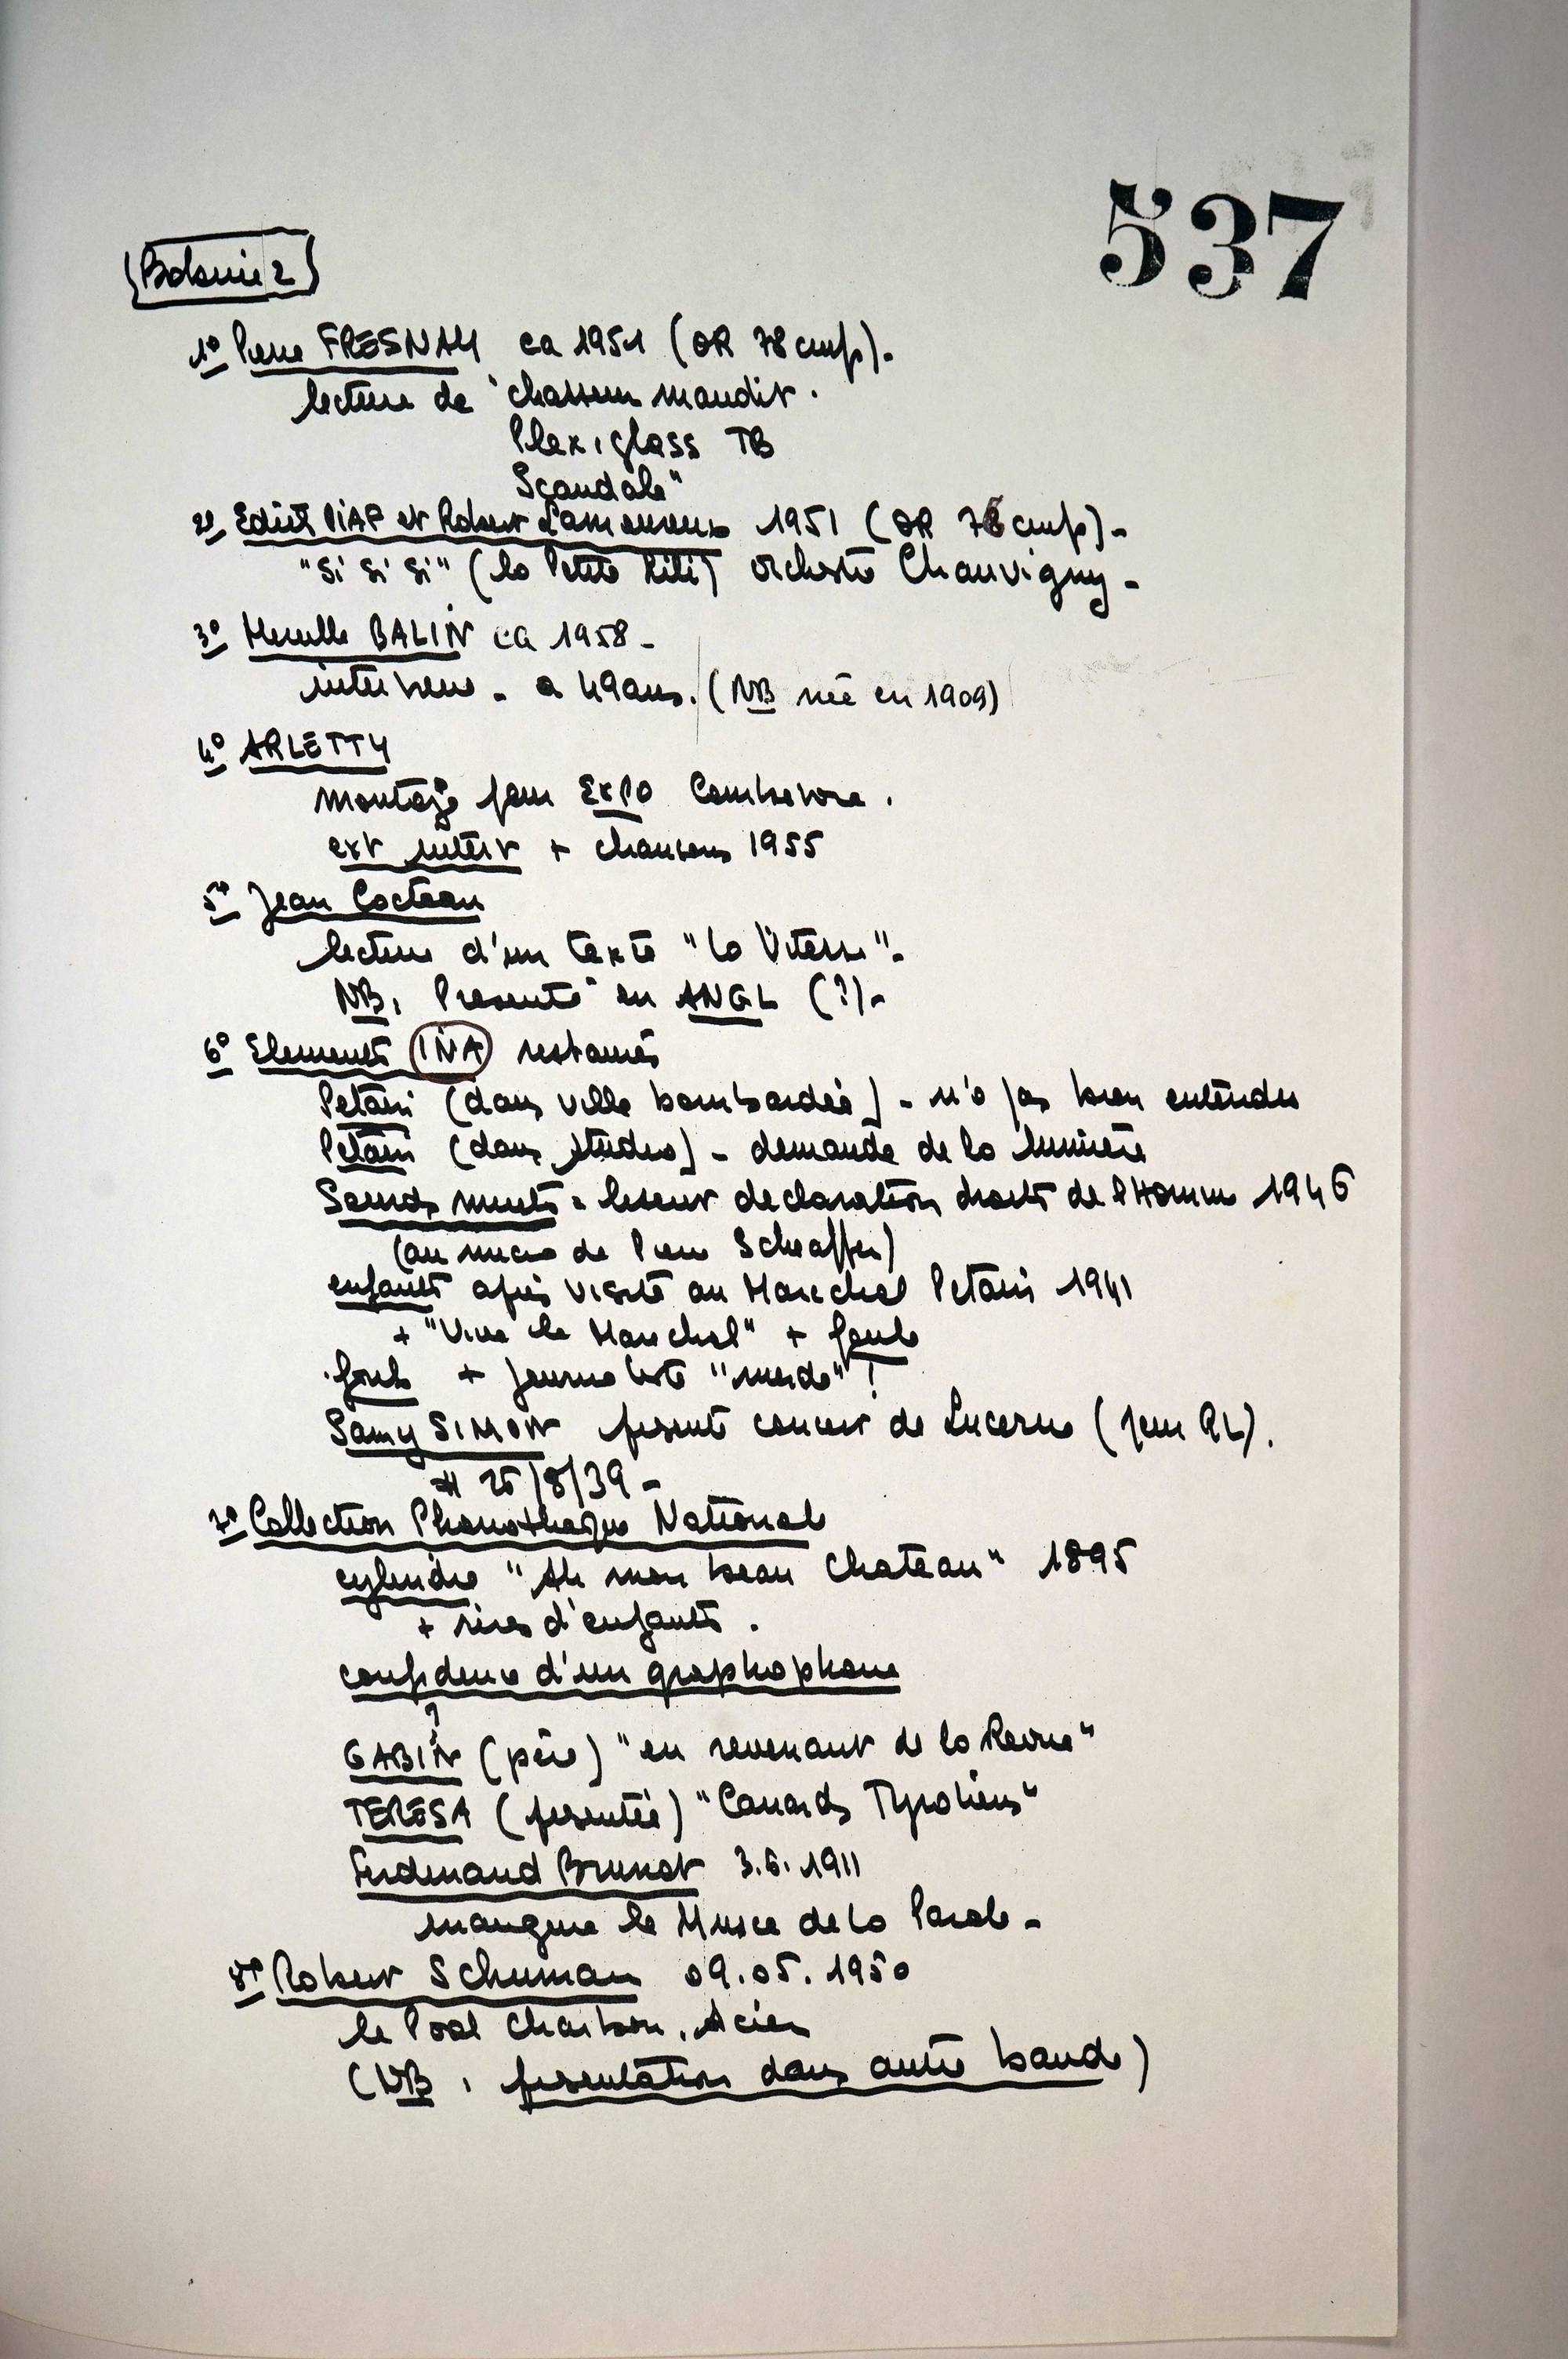 537
Bobine 2
1° Pierre FRESNAY ca 1951 (OR 78 cmp).
lecture de "chasseur maudit.
Plexiglass TB
Scandale"
2° Edith PIAF et Robert Lamoureux 1951 (OR 78 cmp)-
"Si Si Si" (la Petite Lili) orchestre Chauvigny-
3° Mireille BALIN ca 1958-
interview - a 49 ans. (NB née en 1909)
4° ARLETTY
montage pour EXPO Courbevoie.
ext interv + chansons 1955
5° Jean Cocteau
lecture d'un texte "la Vitesse"-
NB, Presenté en ANGL (?)-
6° Elements INA restaurés
Petain (dans ville bombardée) - n'a pas bien entendu
Petain (dans studio) - demande de la lumière
Sourds muets = lisent declaration droits de l'Homme 1946
(au micro de Pierre Schaeffer)
enfants après visite au Marechal Petain 1941
+ "Vive le Marechal" + foule
foule + journaliste "merde"!
Samy SIMON presente concert de Lucerne (pour RL).
# 25/8/39-
7° Collection Phonotheque Nationale
cylindre "Ah mon beau chateau" 1895
+ rires d'enfants.
confidence d'un graphophone
?
GABIN (père) "en revenant de la Revue"
TERESA (presentée) "Canards Tyroliens"
Ferdinand Brunot 3.6.1911
inaugure le Musee de la Parole-
8° Robert Schuman 09.05.1950
le Pool charbon, Acier
(NB, presentation dans autre bande)